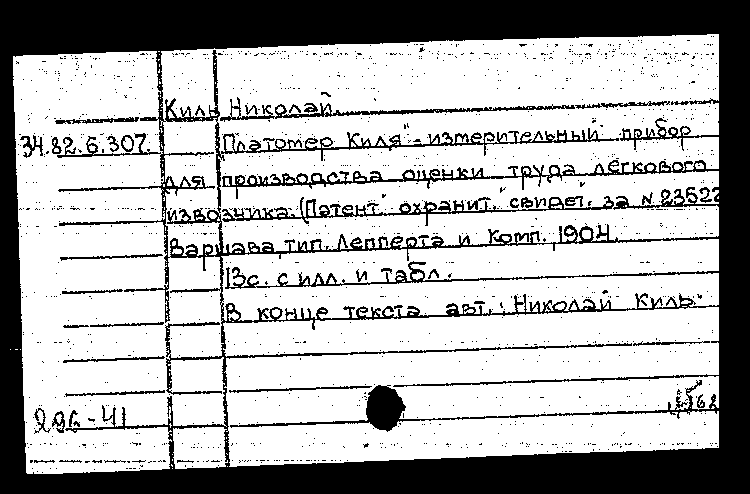 Киль Николай.
34.82.6.307.
"Платомер Киля" - измерительный прибор
для производства оценки труда легкового
извозчика. (Патент охранит. свидет. за N 23522
Варшава, тип. Лепперта и Комп., 1904.
13с. с илл. и табл.
В конце текста авт.: Николай Киль.
296-41